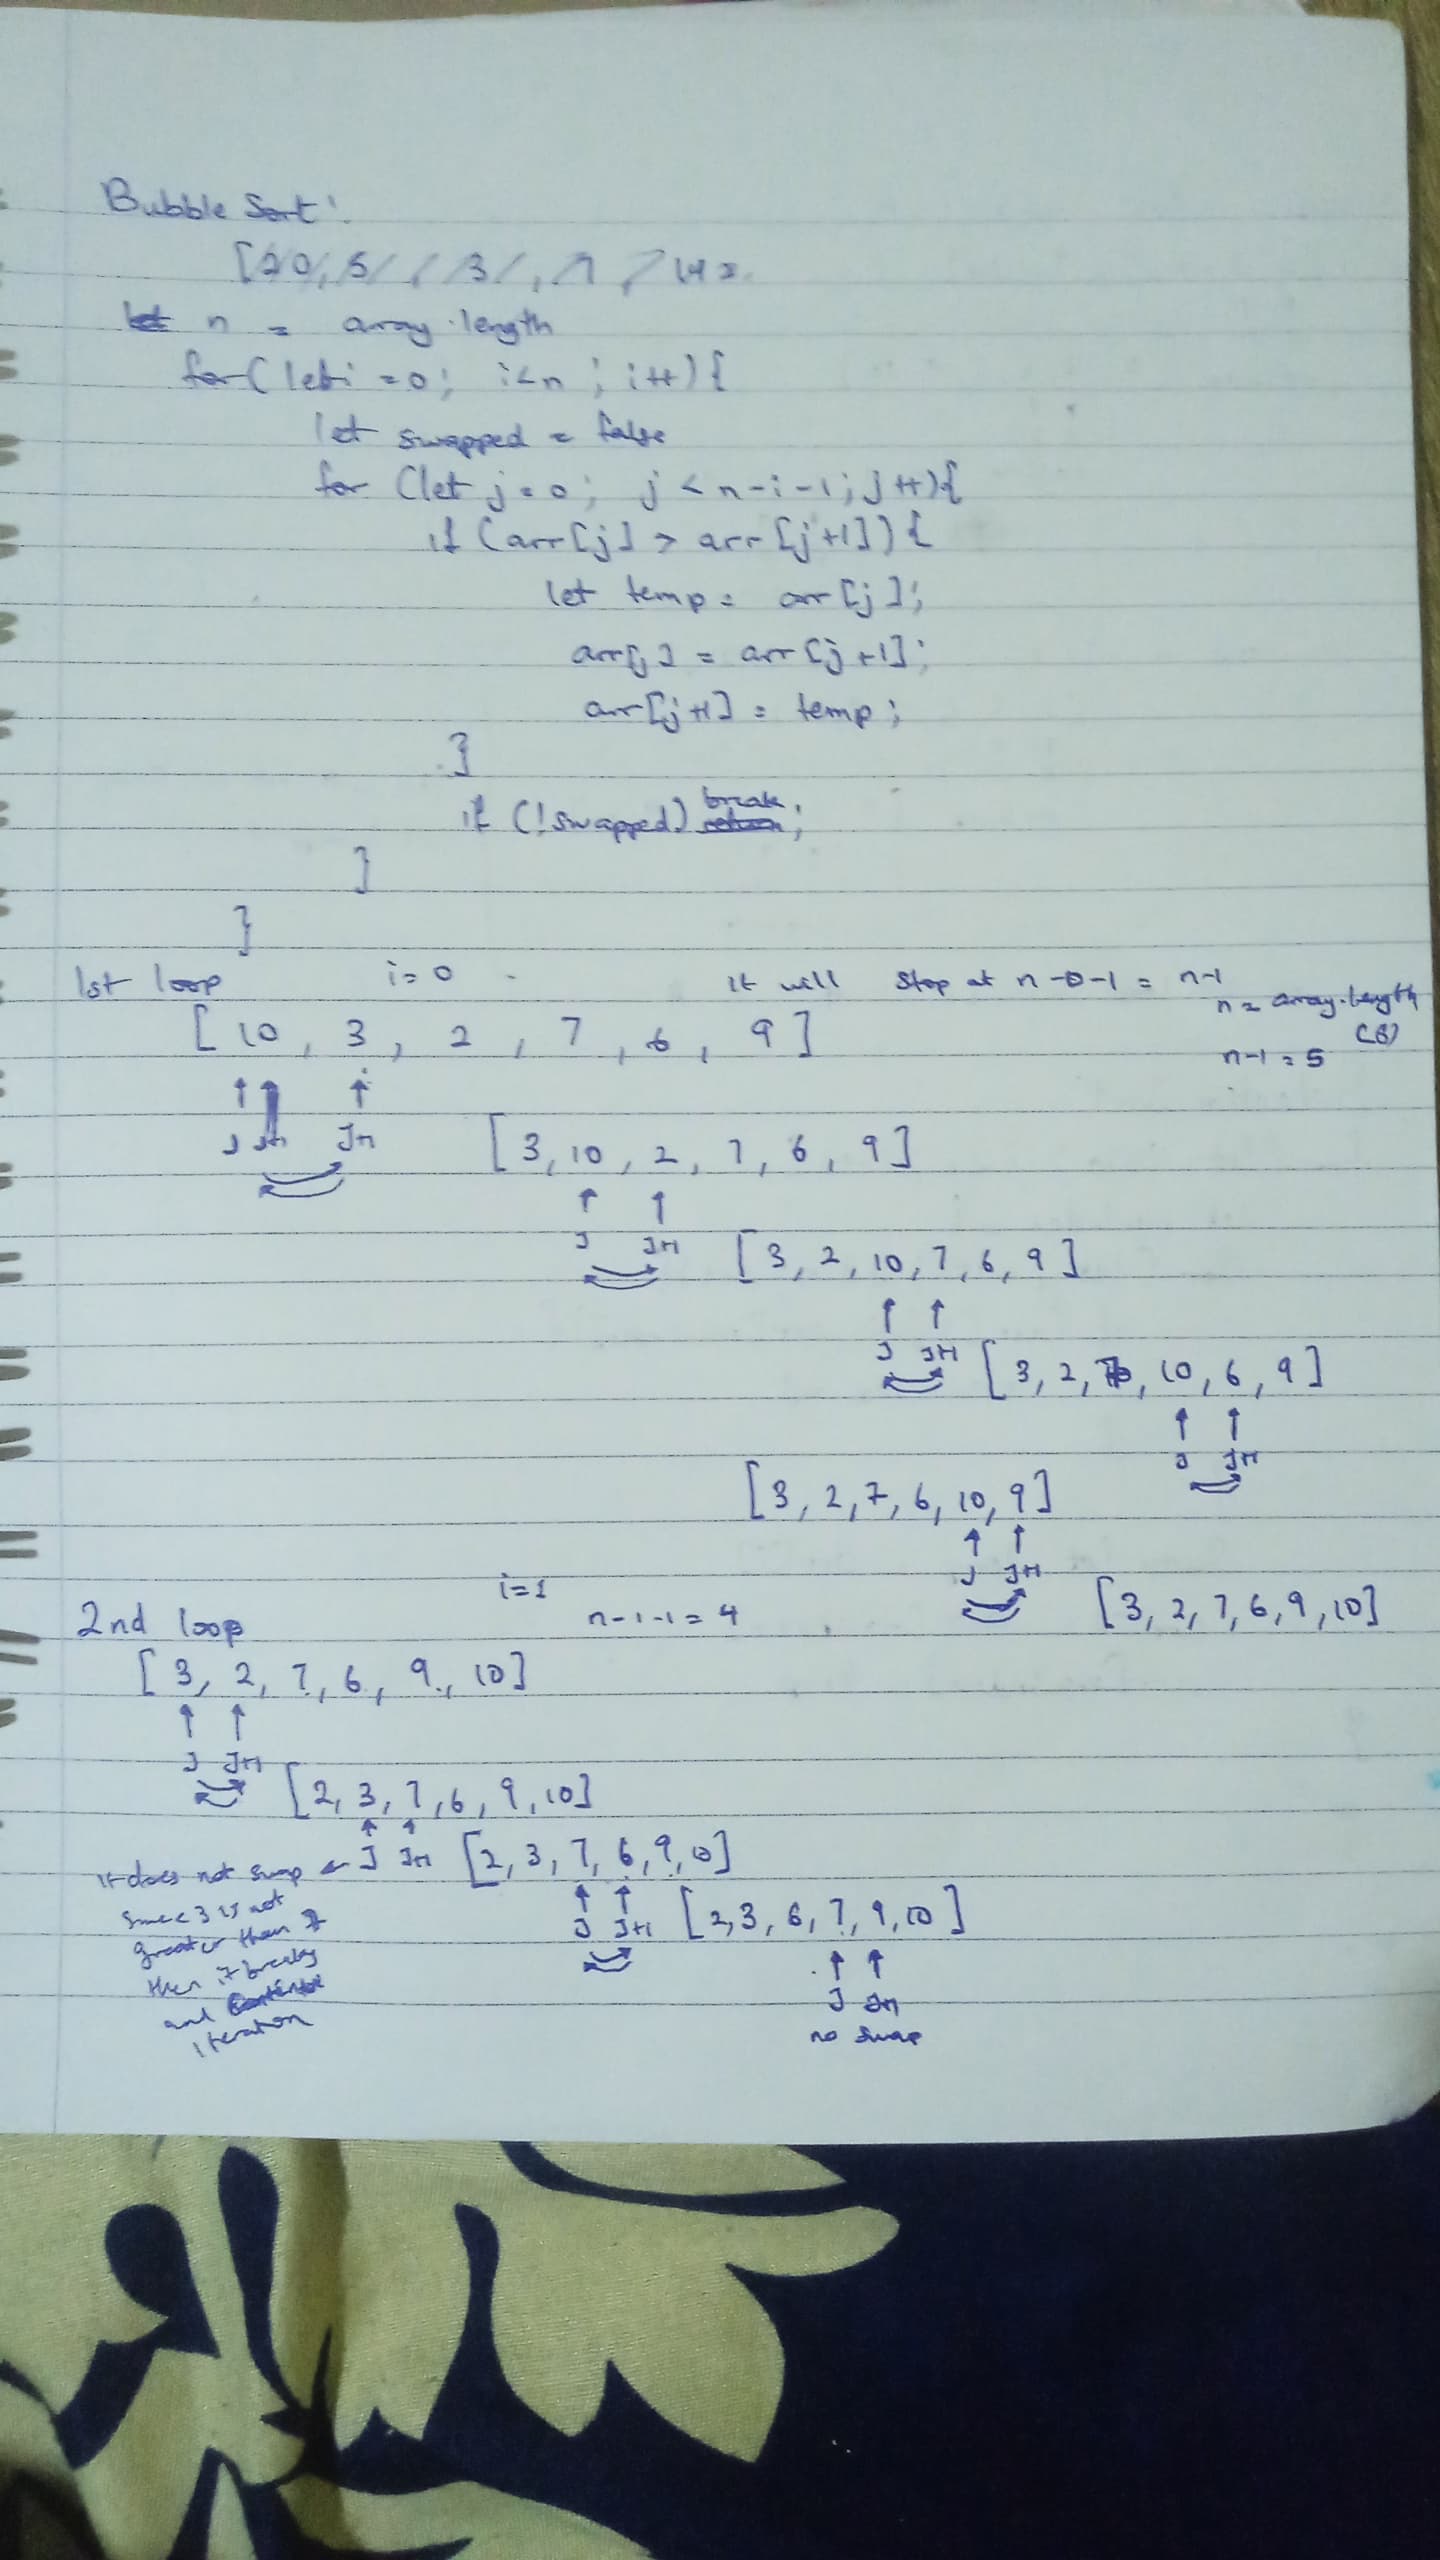 Bubble Sort:
[20, 5 / , 3 / , 7 ,
let n = array.length
for (let i = 0; i < n; i++) {
let swapped = false
for (let j = 0; j < n-i-1; j++) {
if (arr[j] > arr[j+1]) {
let temp = arr[j];
arr[j] = arr[j+1];
arr[j+1] = temp;
}
if (!swapped) break;
}
}
1st loop i = 0 it will stop at n-0-1 = n-1
n = array.length
(6)
[10, 3, 2, 7, 6, 9]
n-1 = 5
J J+1 J+1
[3, 10, 2, 7, 6, 9]
J J+1
[3, 2, 10, 7, 6, 9]
J J+1
[3, 2, 7, 10, 6, 9]
J J+1
[3, 2, 7, 6, 10, 9]
J J+1
[3, 2, 7, 6, 9, 10]
2nd loop i=1 n-1-1 = 4
[3, 2, 7, 6, 9, 10]
J J+1
[2, 3, 7, 6, 9, 10]
J J+1
[2, 3, 7, 6, 9, 10]
it does not swap
since 3 is not
greater than 7
then it breaks
and continue
iteration
J J+1
[2, 3, 6, 7, 9, 10]
J J+1
no swap